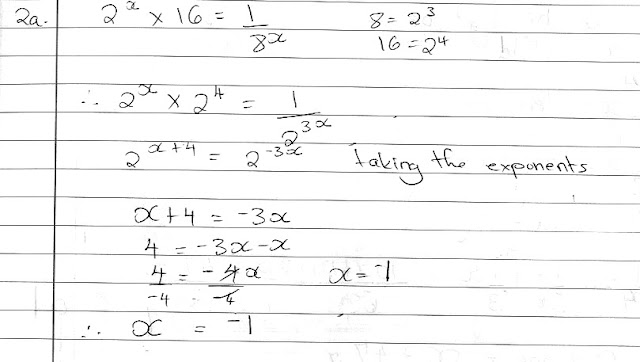 2a. 2^x × 16 = 1/8^x    8 = 2^3
16 = 2^4
∴ 2^x × 2^4 = 1/2^(3x)
2^(x+4) = 2^(-3x)    taking the exponents
x + 4 = -3x
4 = -3x - x
4/-4 = -4x/-4    x = -1
∴ x = -1